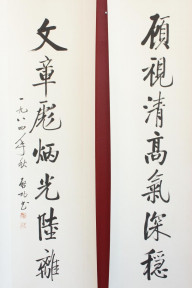 顧視清高氣深穩
文章彪炳光陸離
一九八四年秋 啟功書